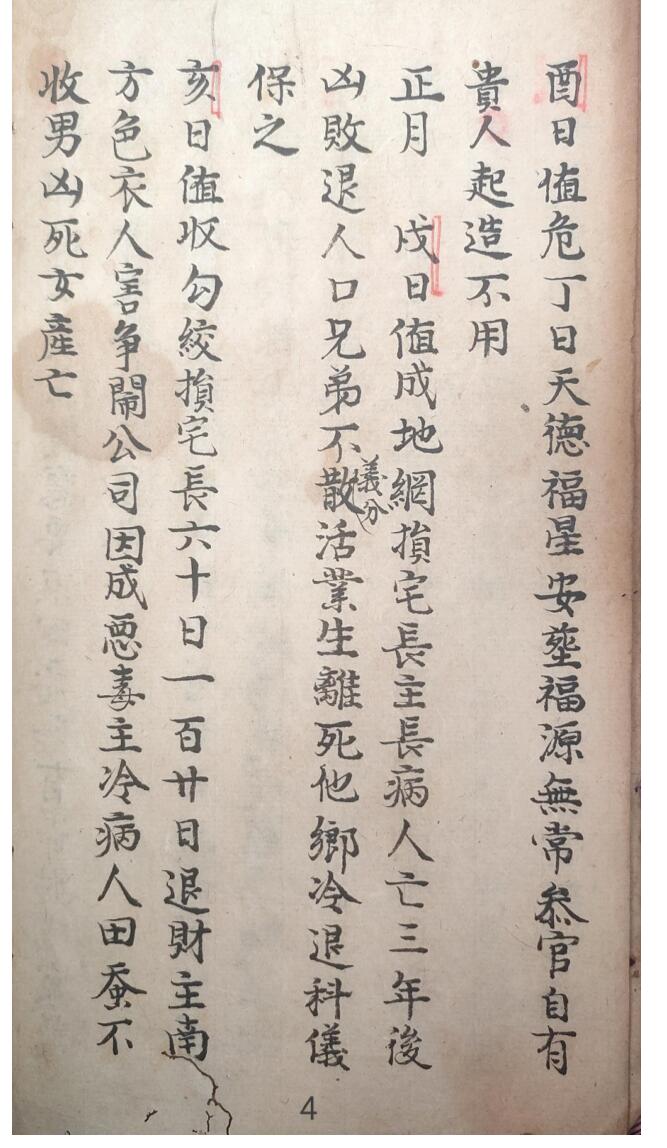 酉日值危丁日天德福星安塟福源無常叅官自有
貴人起造不用
正月　戌日值成地網損宅長主長病人亡三年後
凶敗退人口兄弟不散活業生離死他鄉冷退科儀
義分
保之
亥日值收勾絞損宅長六十日一百廿日退財主南
方色衣人害争鬧公司因成惡毒主冷病人田蚕不
收男凶死女產亡
4